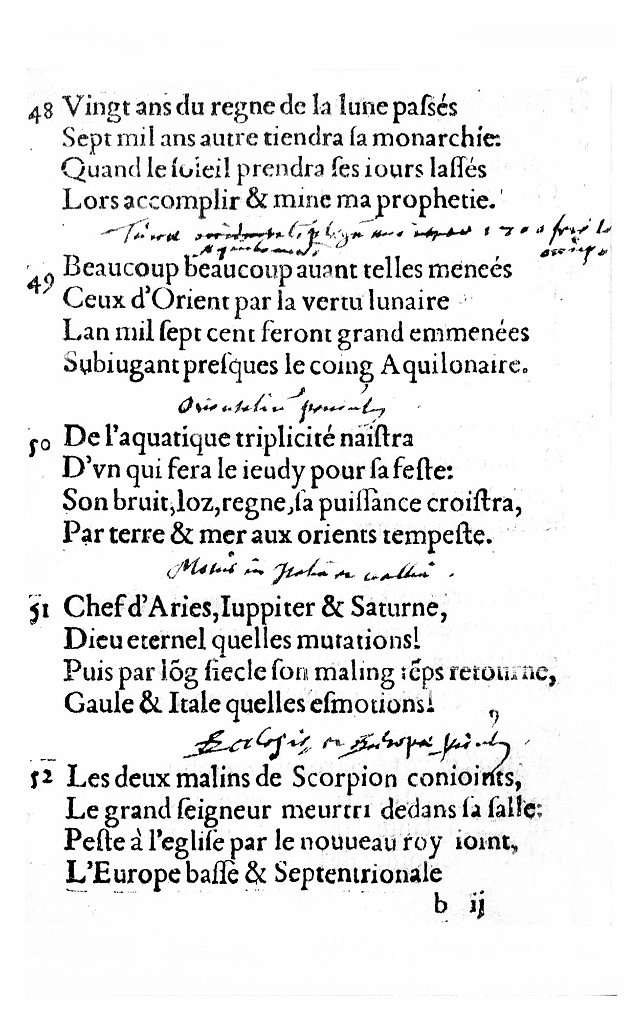 48 Vingt ans du regne de la lune paſsés
Sept mil ans autre tiendra ſa monarchie:
Quand le ſoleil prendra ſes iours laſſés
Lors accomplir & mine ma prophetie.
49 Beaucoup beaucoup auant telles meneés
Ceux d'Orient par la vertu lunaire
Lan mil ſept cent feront grand emmenées
Subiugant preſques le coing Aquilonaire.
50 De l'aquatique triplicité naiſtra
D'vn qui fera le ieudy pour ſa feſte:
Son bruit, loz, regne, ſa puiſſance croiſtra,
Par terre & mer aux orients tempeſte.
51 Chef d'Aries, Iuppiter & Saturne,
Dieu eternel quelles mutations!
Puis par lõg ſiecle ſon maling tẽps retourne,
Gaule & Itale quelles eſmotions!
52 Les deux malins de Scorpion conioints,
Le grand ſeigneur meurtri dedans ſa ſalle:
Peſte à l'egliſe par le nouueau roy ioint,
L'Europe baſſe & Septentrionale
b ij